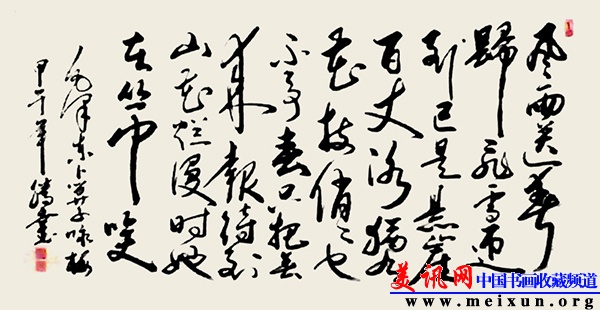 风雨送春
歸飛雪迎
到已是悬崖
百丈冰犹有
花枝俏〻也
不争春只把春
来报待到
山花烂漫时她
在丛中咲
毛泽东卜算子咏梅
甲午年
美讯网 中国书画收藏频道
www.meixun.org